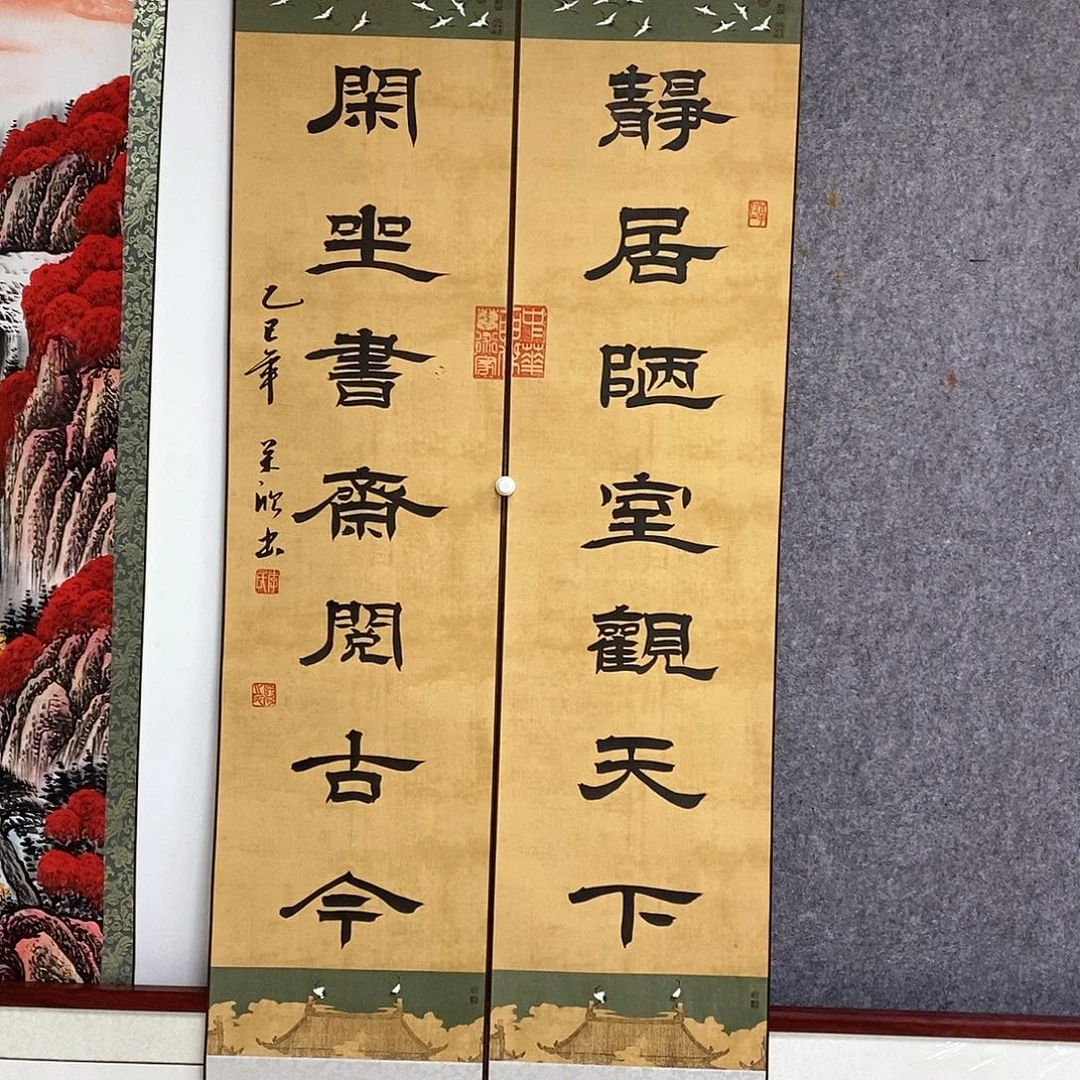 靜居陋室觀天下
閑坐書齋閱古今
乙巳年